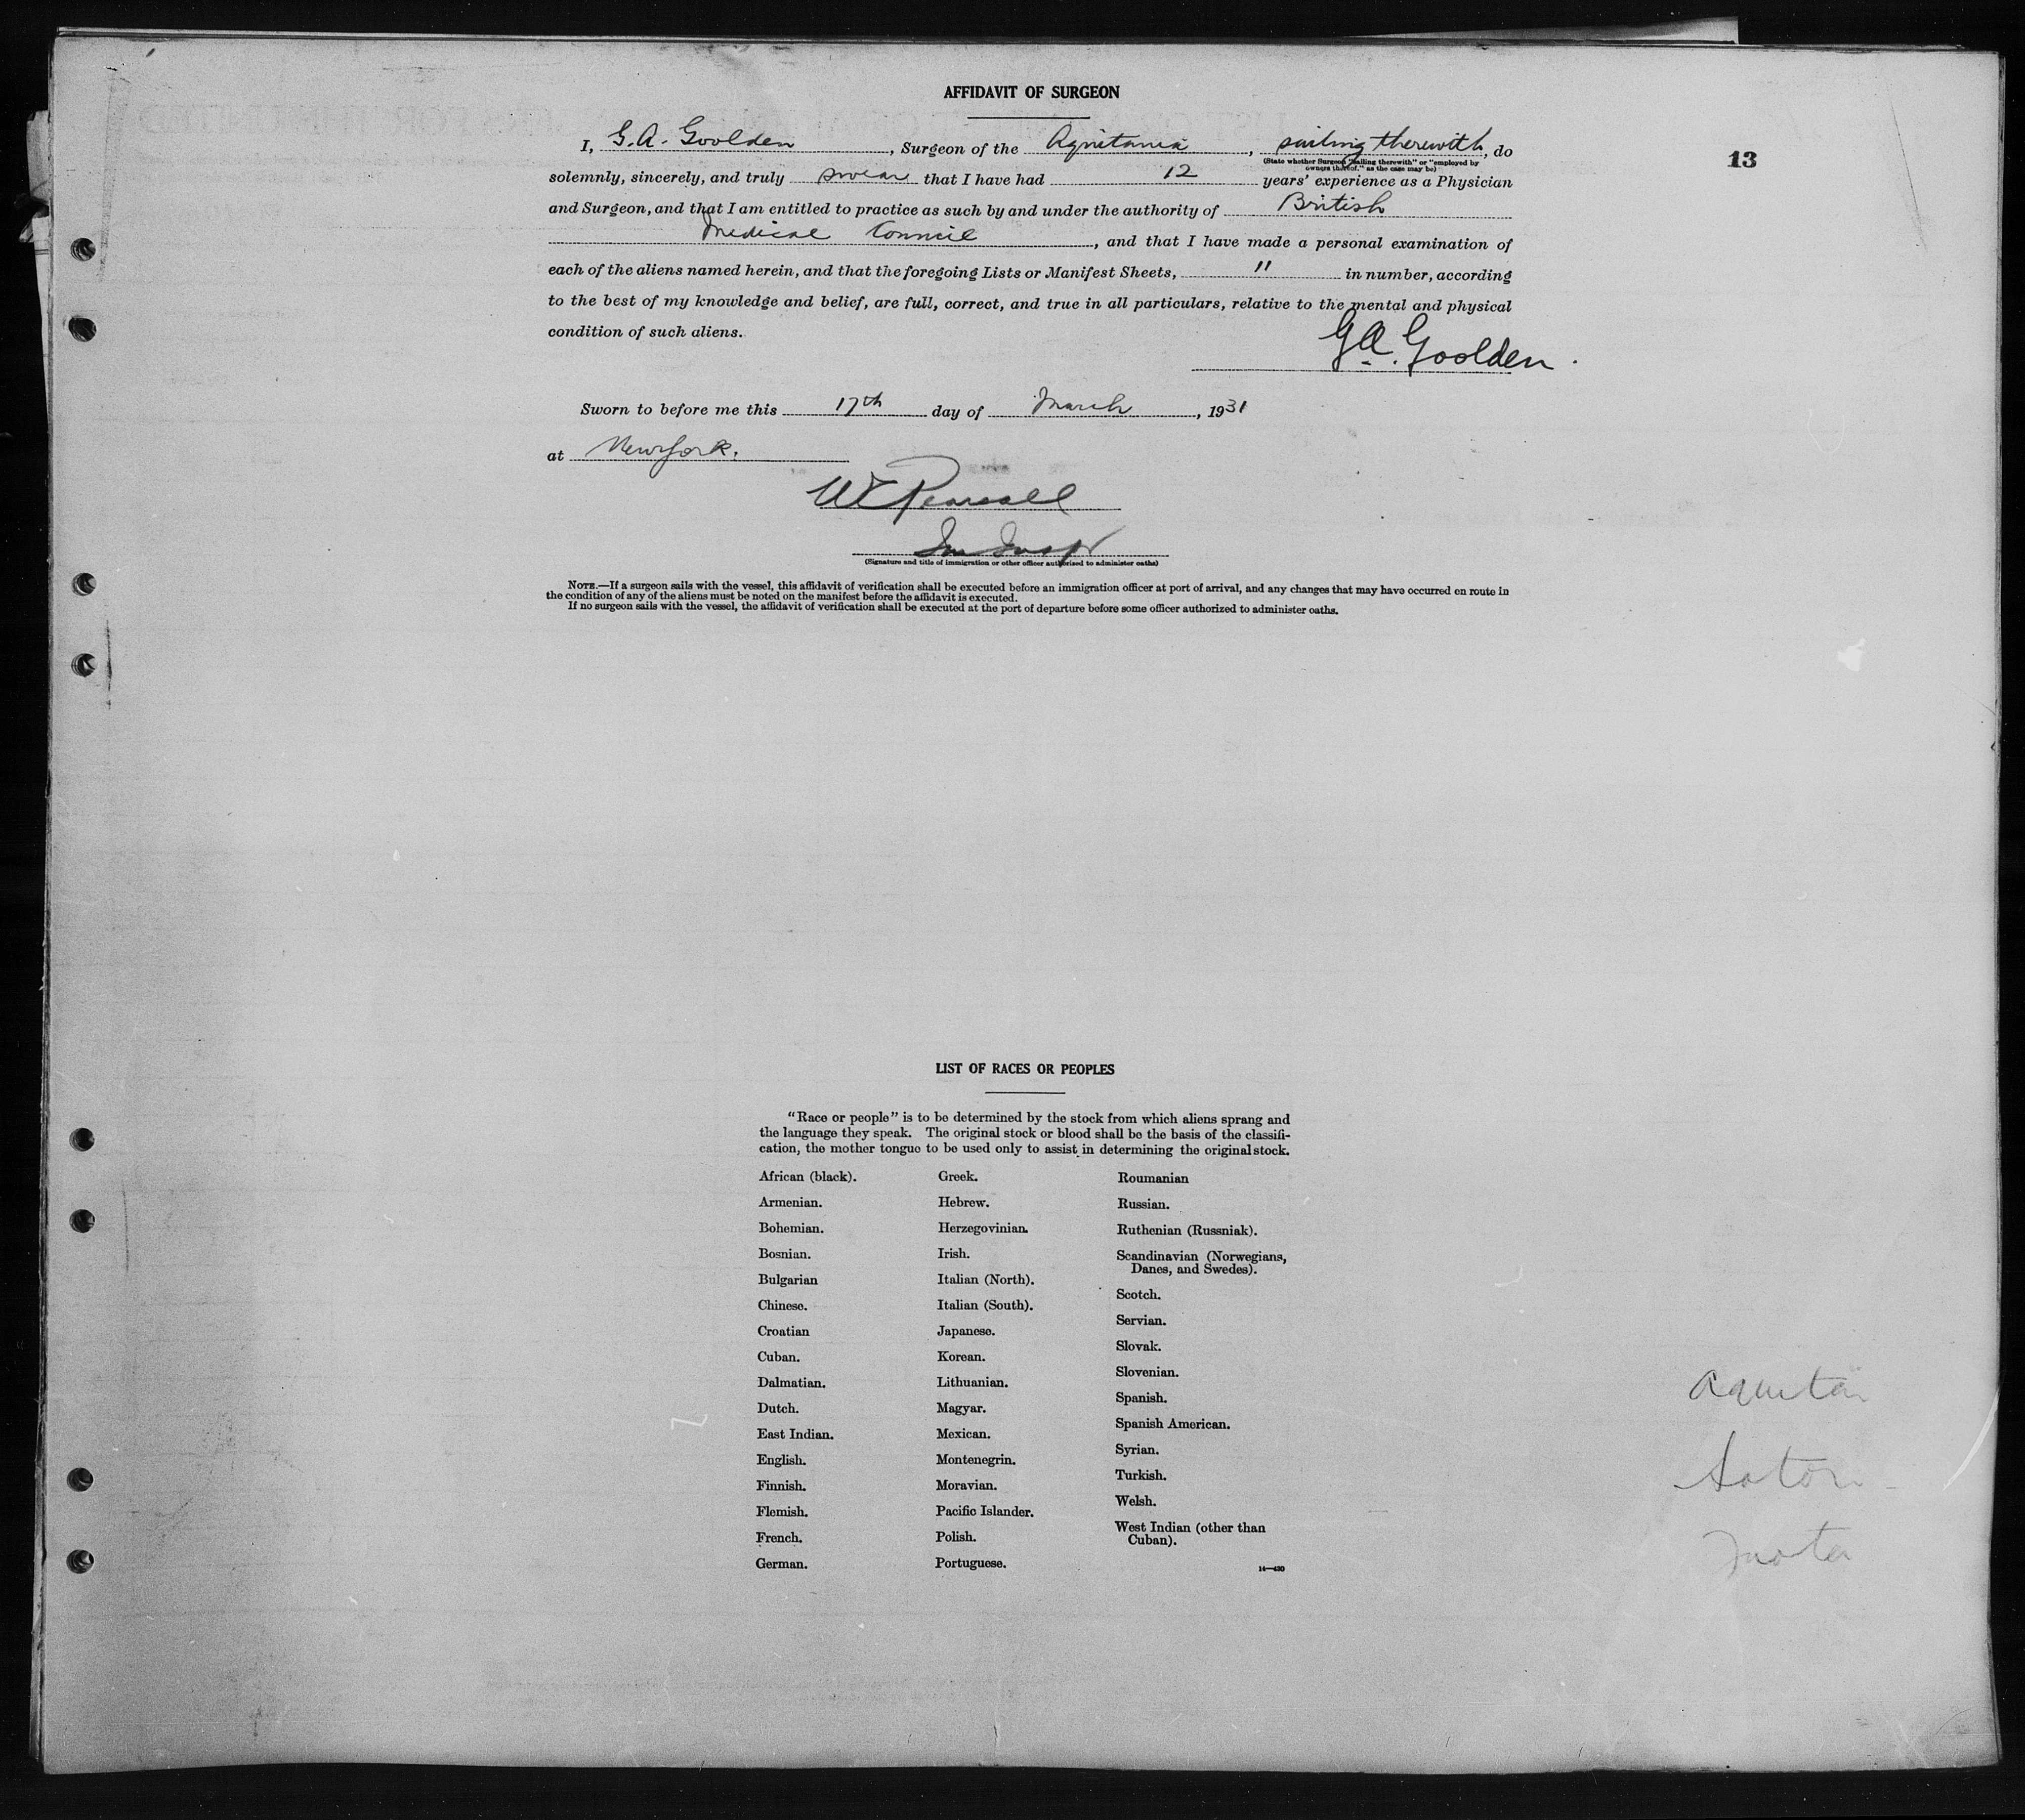 AFFIDAVIT OF SURGEON
13
I, G.A. Goolden, Surgeon of the Aquitania, sailing therewith, do
(State whether Surgeon "sailing therewith" or "employed by
owners thereof," as the case may be)
solemnly, sincerely, and truly swear that I have had 12 years' experience as a Physician
and Surgeon, and that I am entitled to practice as such by and under the authority of British
Medical Council, and that I have made a personal examination of
each of the aliens named herein, and that the foregoing Lists or Manifest Sheets, 11 in number, according
to the best of my knowledge and belief, are full, correct, and true in all particulars, relative to the mental and physical
condition of such aliens.
G.A. Goolden.
Sworn to before me this 17th day of March, 1931
at New York.
Pearsall
(Signature and title of immigration or other officer authorized to administer oaths)
NOTE.—If a surgeon sails with the vessel, this affidavit of verification shall be executed before an immigration officer at port of arrival, and any changes that may have occurred en route in
the condition of any of the aliens must be noted on the manifest before the affidavit is executed.
If no surgeon sails with the vessel, the affidavit of verification shall be executed at the port of departure before some officer authorized to administer oaths.
LIST OF RACES OR PEOPLES
"Race or people" is to be determined by the stock from which aliens sprang and
the language they speak. The original stock or blood shall be the basis of the classifi-
cation, the mother tongue to be used only to assist in determining the original stock.
African (black).
Armenian.
Bohemian.
Bosnian.
Bulgarian
Chinese.
Croatian
Cuban.
Dalmatian.
Dutch.
East Indian.
English.
Finnish.
Flemish.
French.
German.
Greek.
Hebrew.
Herzegovinian.
Irish.
Italian (North).
Italian (South).
Japanese.
Korean.
Lithuanian.
Magyar.
Mexican.
Montenegrin.
Moravian.
Pacific Islander.
Polish.
Portuguese.
Roumanian
Russian.
Ruthenian (Russniak).
Scandinavian (Norwegians,
Danes, and Swedes).
Scotch.
Servian.
Slovak.
Slovenian.
Spanish.
Spanish American.
Syrian.
Turkish.
Welsh.
West Indian (other than
Cuban).
14—430